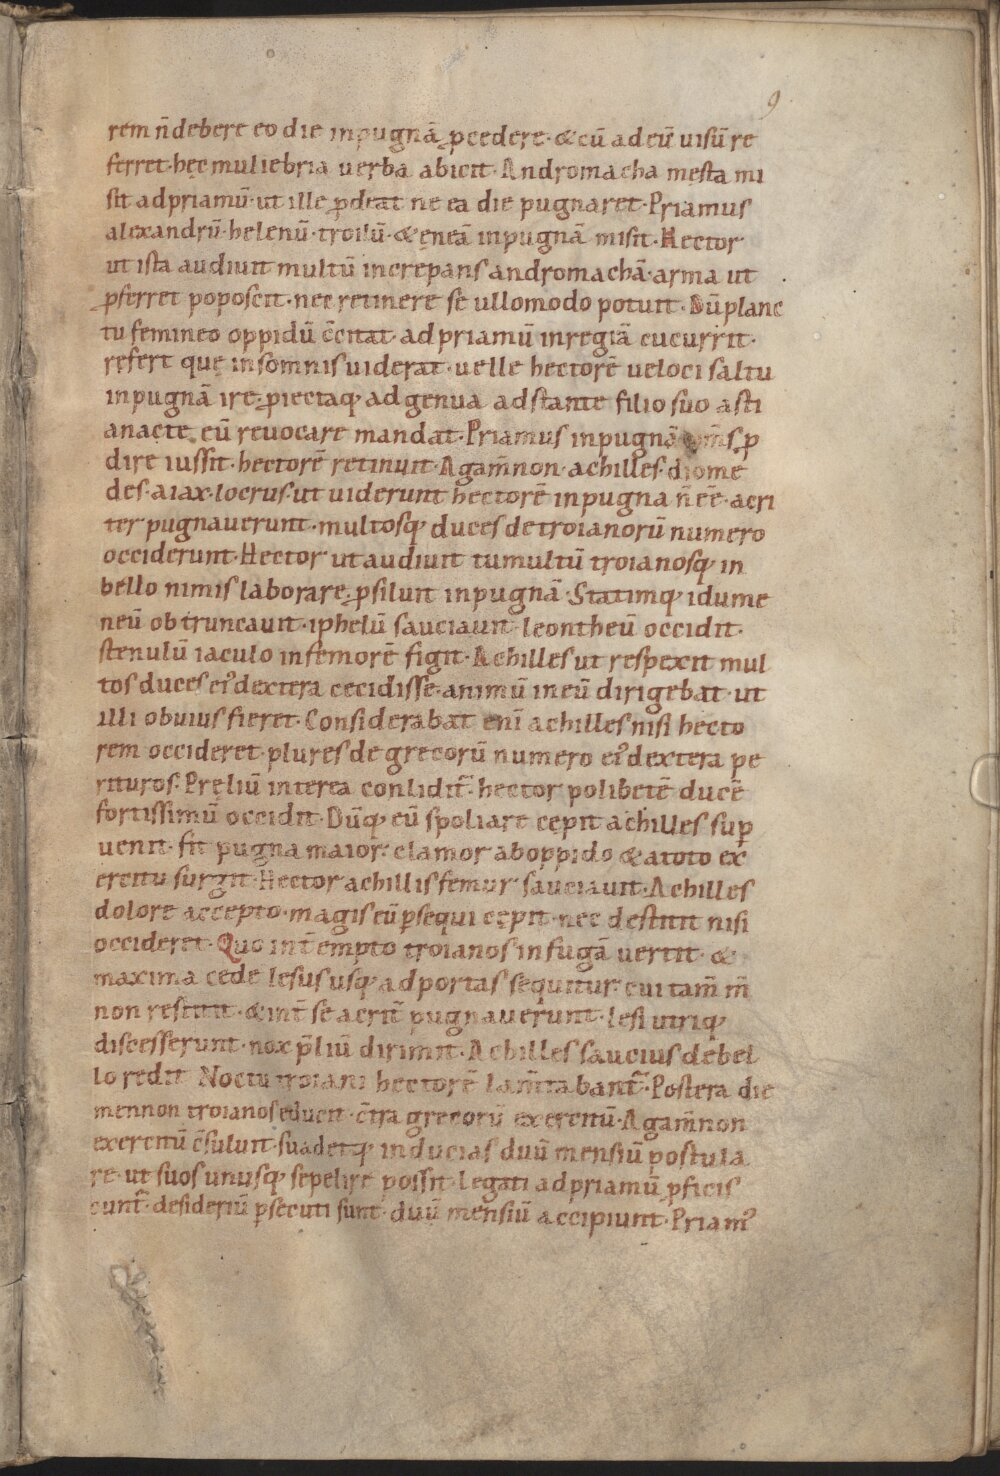 9
rem n̄ debere eo die inpugnā ꝓcedere · & cū ad eū uisū re
ferret · hec muliebria uerba abicit · Andromacha mesta mi
sit ad priamū · ut ille ꝓdeat ne ea die pugnaret · Priamus
alexandrū · helenū · troilū · & eneā inpugnā misit · Hector
ut ista audiuit multū increpans andromachā · arma ut
ꝓferret poposcit · nec retinere se ullomodo potuit · Dū planc
tu femineo oppidū c̄citat · ad priamū inregiā cucurrit ·
refert quę insomnis uiderat · uelle hectorē ueloci saltu
inpugnā ire · ꝓiectaq; ad genua adstante filio suo asti
anacte eū reuocare mandat · Priamus inpugnā om̄s ꝓ
dire iussit · hectorē retinuit · Agam̄non · achilles · diome
des · aiax · locrus · ut uiderunt hectorē inpugna n̄ eē · acri
ter pugnauerunt · multosq; duces de troianorū numero
occiderunt · Hector ut audiuit tumultū troianosq; in
bello nimis laborare · ꝓsiluit inpugnā · Statimq; idume
neū obtruncauit · iphelū sauciauit · leontheū occidit ·
stenulū iaculo infemorē figit · Achilles ut respexit mul
tos duces ei᾽ dextera cecidisse · animū ineū dirigebat · ut
illi obuius fieret · Considerabat enī achilles nisi hecto
rem occideret · plures de grecorū numero ei᾽ dextera pe
rituros · Pręliū interea conlidit᷑ · hector polibetē ducē
fortissimū occidit · Dūq; eū spoliare cepit achilles suꝑ
uenit · fit pugna maior · clamor aboppido & atoto ex
ercitu surgit · Hector achillis femur sauciauit · Achilles
dolore accepto · magis eū ꝑsequi cepit · nec destitit nisi
occideret · Quo int̄empto troianos infugā uertit · &
maxima cede lesus usq; ad portas sequitur · cui tam̄ m̄
non restitit · & int̄ se acrit̄ pugnauerunt · lesi utriq;
discesserunt · nox p̄liū dirimit · Achilles saucius debel
lo redit Noctu troiani hectorē lam̄tabant᷑ · Postera die
mennon troianos educit · c̄tra grecorū exercitū · Agam̄non
exercitū c̄sulunt · suadetq; inducias duū mensiū postula
re · ut suos unusq; sepelire possit · Legati ad priamū ꝓficis
cunt᷑ · desideriū ꝑsecuti sunt · duū mensiū accipiunt · Priam᾽